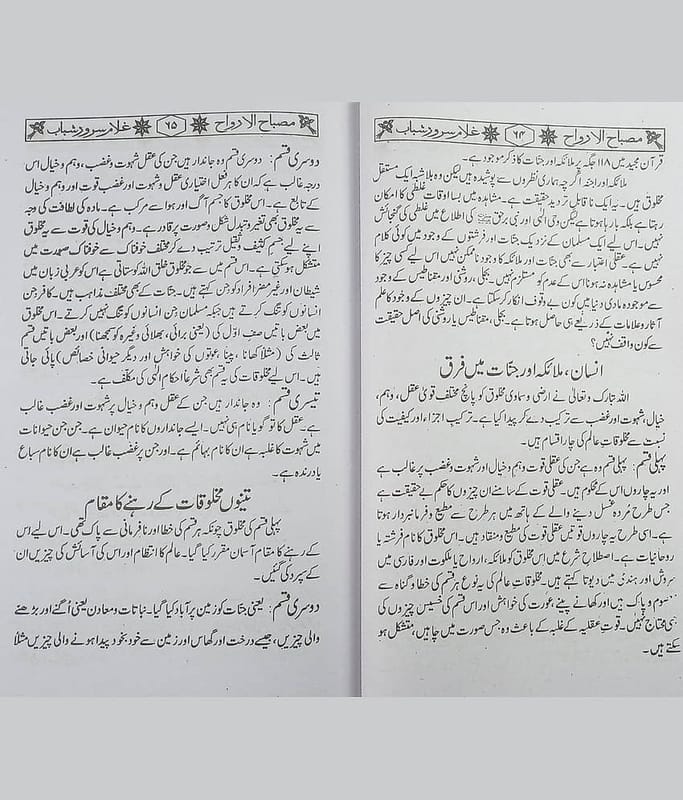 مصباح الارواح ۶۴ غلام سرور شباب
قرآن مجید میں ۱۱۸ جگہ پر ملائکہ اور جنّات کا ذکر موجود ہے۔
ملائکہ اور اجنہ اگرچہ ہماری نظروں سے پوشیدہ ہیں لیکن وہ بلاشبہ ایک مستقل
مخلوق ہیں۔ یہ ایک ناقابل تردید حقیقت ہے۔ مشاہدہ میں بسا اوقات غلطی کا امکان
رہتا ہے بلکہ بار ہا ہوتا ہے لیکن وحی الٰہی اور نبی برحق ﷺ کی اطلاع میں غلطی کی گنجائش
نہیں۔ اس لیے ایک مسلمان کے نزدیک جنّات اور فرشتوں کے وجود میں کوئی کلام
نہیں ہے۔ عقلی اعتبار سے بھی جنّات اور ملائکہ کا وجود ناممکن نہیں اس لیے کسی چیز کا
محسوس یا مشاہدہ نہ ہونا اس کے عدم کو مستلزم نہیں۔ بجلی، روشنی اور مقناطیس کے وجود
سے موجودہ مادی دنیا میں کون بے وقوف انکار کر سکتا ہے۔ ان چیزوں کے وجود کا علم
آثار و علامات کے ذریعے ہی حاصل ہوتا ہے۔ بجلی، مقناطیس یا روشنی کی اصل حقیقت
سے کون واقف نہیں؟
انسان، ملائکہ اور جنّات میں فرق
اللہ تبارک و تعالیٰ نے ارضی و سماوی مخلوق کو پانچ مختلف قویٰ عقل، وہم،
خیال، شہوت اور غضب سے ترکیب دے کر پیدا کیا ہے۔ ترکیب اجزاء اور کیفیت کی
نسبت سے مخلوقات عالم کی چار اقسام ہیں۔
پہلی قسم: پہلی قسم وہ ہے جن کی عقلی قوت وہم و خیال اور شہوت و غضب پر غالب ہے
اور یہ چاروں اس کے محکوم ہیں۔ عقلی قوت کے سامنے ان چیزوں کا حکم بے حقیقت ہے
جس طرح مُردہ غسل دینے والے کے ہاتھ میں ہر طرح سے مطیع و فرمانبردار ہوتا
ہے۔ اسی طرح یہ چاروں قوتیں عقلی قوت کی مطیع و منقاد ہیں۔ اس مخلوق کا نام فرشتہ یا
روحانیات ہے۔ اصطلاح شرع میں اس مخلوق کو ملائکہ، ارواح یا ملکوت اور فارسی میں
سروش اور ہندی میں دیوتا کہتے ہیں۔ مخلوقات عالم کی یہ نوع ہر قسم کی خطا و گناہ سے
سوم و پاک ہیں اور کھانے پینے عورت کی خواہش اور اس قسم کی خسیس چیزوں کی
بھی محتاج نہیں۔ قوت عقلیہ کے غلبہ کے باعث وہ جس صورت میں چاہیں، متشکل ہو
سکتے ہیں۔
مصباح الارواح ۶۵ غلام سرور شباب
دوسری قسم: دوسری قسم وہ جاندار ہیں جن کی عقل شہوت و غضب، وہم و خیال اس
درجہ غالب ہے کہ ان کا ہر فعل اختیاری عقل و شہوت اور غضب قوت اور وہم و خیال
کے تابع ہے۔ اس مخلوق کا جسم آگ اور ہوا سے مرکب ہے۔ مادہ کی لطافت کی وجہ
سے یہ مخلوق بھی تغیر و تبدل شکل و صورت پر قادر ہے۔ وہم و خیال کی قوت سے یہ مخلوق
اپنے لیے جسم کثیف و ثقیل ترتیب دے کر مختلف خوفناک سے خوفناک صورت میں
متشکل ہو سکتی ہے۔ اس قسم میں سے جو مخلوق خلق اللہ کو ستاتی ہے اس کو عربی زبان میں
شیطان اور غیر مضر افراد کو جن کہتے ہیں۔ جنّات کے بھی مختلف مذاہب ہیں۔ کافر جن
انسانوں کو تنگ کرتے ہیں جبکہ مسلمان جن انسانوں کو تنگ نہیں کرتے۔ اس مخلوق
میں بعض باتیں صف اوّل کی (یعنی برائی، بھلائی وغیرہ کو سمجھنا) اور بعض باتیں قسم
ثالث کی (مثلاً کھانا، پینا، عورتوں کی خواہش اور دیگر حیوانی خصائص) پائی جاتی
ہیں۔ اس لیے مخلوقات کی یہ قسم بھی شرعاً احکام الٰہی کی مکلّف ہے۔
تیسری قسم: وہ جاندار ہیں جن کے عقل وہم و خیال پر شہوت اور غضب غالب
ہے۔ عقل کا تو گویا نام ہی نہیں۔ ایسے جانداروں کا نام حیوان ہے۔ جن جن حیوانات
میں شہوت کا غلبہ ہے ان کا نام بہائم ہے۔ اور جن پر غضب غالب ہے ان کا نام سباع
یا درندہ ہے۔
تینوں مخلوقات کے رہنے کا مقام
پہلی قسم کی مخلوق چونکہ ہر قسم کی خطا اور نافرمانی سے پاک تھی۔ اس لیے اس
کے رہنے کا مقام آسمان مقرر کیا گیا۔ عالم کا انتظام اور اس کی آسائش کی چیزیں ان
کے سپرد کی گئیں۔
دوسری قسم: یعنی جنّات کو زمین پر آباد کیا گیا۔ نباتات و معادن یعنی اُگنے اور بڑھنے
والی چیزیں، جیسے درخت اور گھاس اور زمین سے خود بخود پیدا ہونے والی چیزیں مثلاً